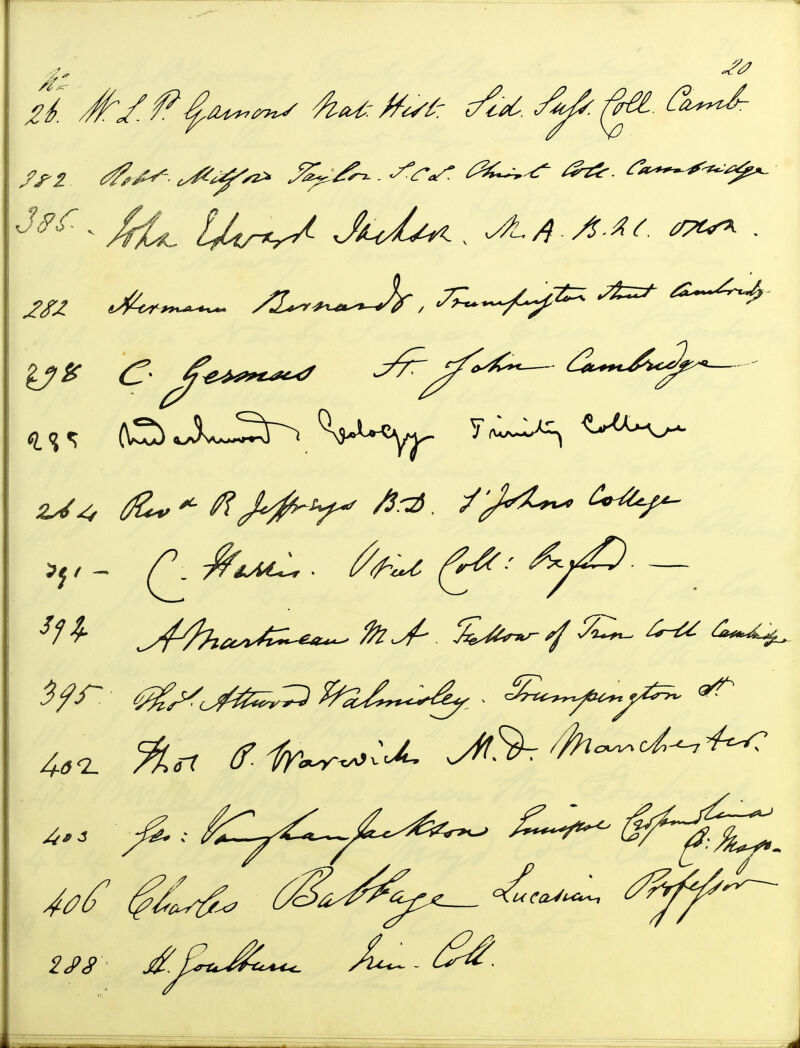 20
No
26. W. L. P. Garnons Nat. Hist. Sid. Suss. Coll. Camb.
382 Robt. Mitford Taylor. S.C.L. Christ Coll. Cambridge
385. John Edward Jackson. M.A. B.N.C. Oxon.
282 Hermann Bernard, Trumpington Street Cambridge
298 C. St. John Cambridge
Geology Trinity College
264 Revd R Jeffreys B.D. St Johns College
391 – C. Harris. Oriel Coll: Oxford. —
394 A Martineau M A. Fellow of Trin Coll Cambridge
395 Thos. Attwood Walmisley. Trumpington St.
402 Thos P. Warwick M.D. Manchester.
403 Geo: Vaughan Jackson
Co: Mayo –
406 Charles Babbage Lucasian Professor
288 H. Goulburn Trin. Coll.